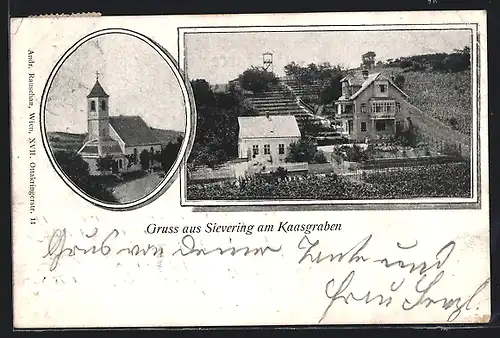 Andr. Rauschan, Wien, XVII. Ottakringerstr. 11
Gruss aus Sievering am Kaasgraben
Gruss von Deiner Tante und
Frau Lenzl.